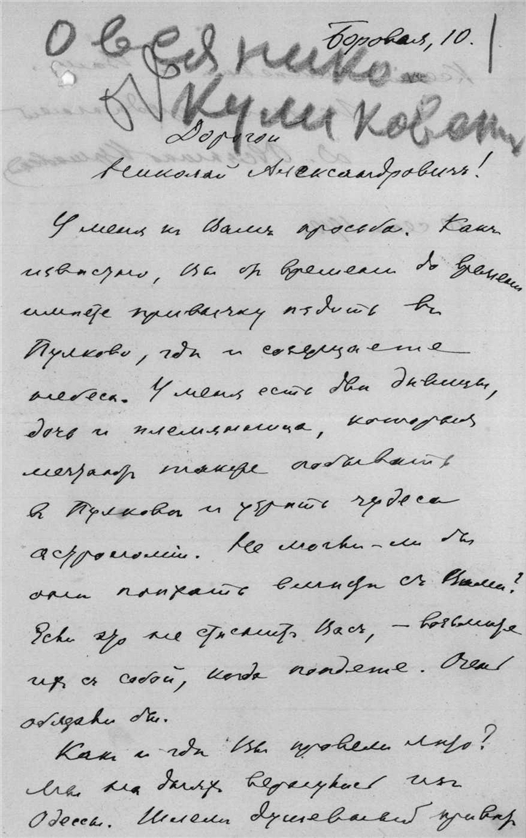 Боровая, 10.
Овсянико-
Куликовский
Дорогой
Николай Александровичъ!
У меня къ Вамъ просьба. Какъ
извѣстно, Вы отъ времени до времени
имѣете привычку ѣздить въ
Пулково, гдѣ и созерцаете
небеса. У меня есть двѣ дѣвицы,
дочь и племянница, которыя
мечтаютъ также побывать
въ Пулковѣ и узрѣть чудеса
астрономіи. Не могли-ли бы
они поѣхать вмѣстѣ съ Вами?
Если это не стѣснитъ Васъ, – возьмите
ихъ съ собой, когда поѣдете. Очень
обяжете бы.
Какъ и гдѣ Вы провели лѣто?
Мы на дняхъ вернулись изъ
Одессы. Шлемъ душевный привѣтъ